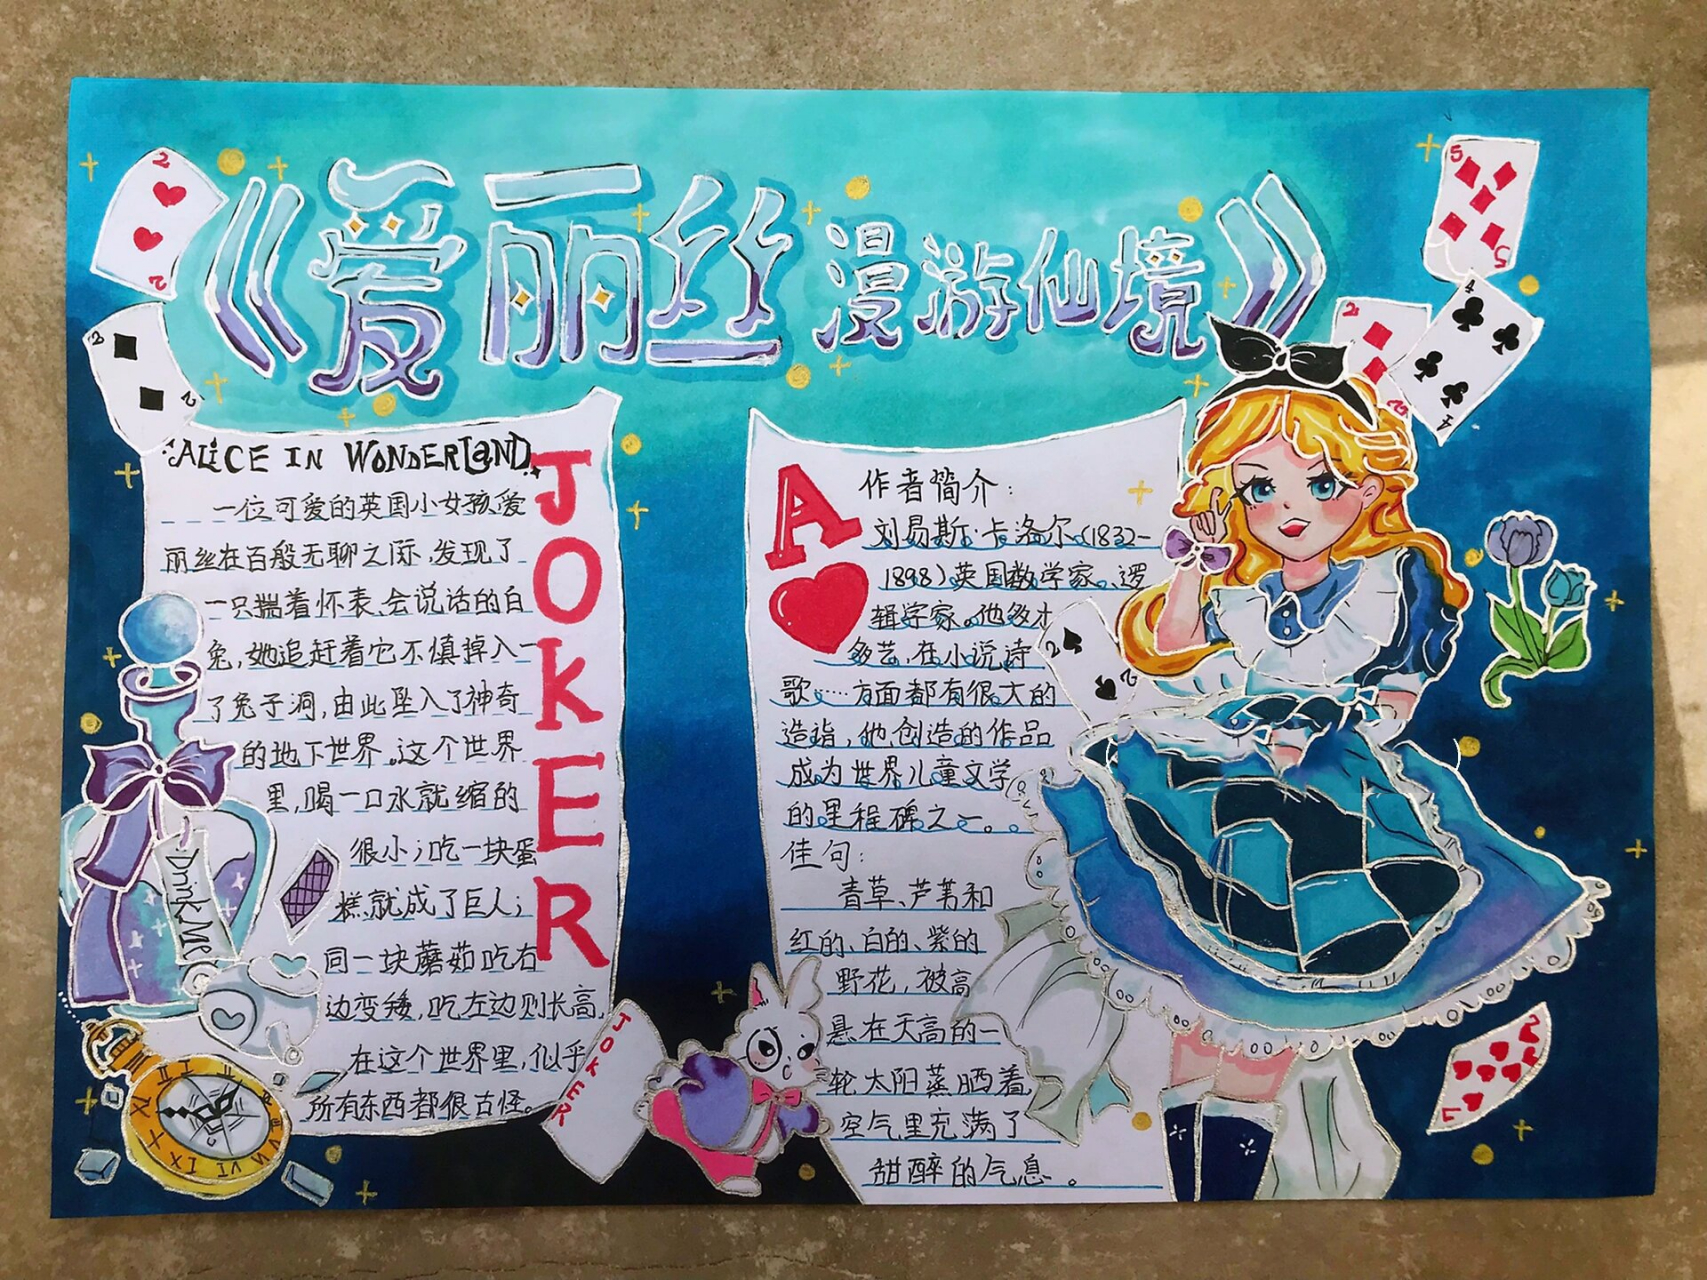 《爱丽丝漫游仙境》
ALiCE IN WONDERLaND
一位可爱的英国小女孩爱
丽丝在百般无聊之际,发现了
一只揣着怀表、会说话的白
兔,她追赶着它不慎掉入一
了兔子洞,由此坠入了神奇
的地下世界。这个世界
里,喝一口水就缩的
很小;吃一块蛋
糕就成了巨人;
同一块蘑菇吃右
边变矮,吃左边则长高,
在这个世界里,似乎
所有东西都很古怪。
JOKER
Drink Me!
JOKER
A
作者简介:
刘易斯·卡洛尔(1832-
1898)英国数学家、逻
辑学家。他多才
多艺,在小说诗
歌……方面都有很大的
造诣,他创造的作品
成为世界儿童文学
的里程碑之一。
佳句:
青草、芦苇和
红的、白的、紫的
野花,被高
悬在天高的一
轮太阳蒸晒着,
空气里充满了
甜醉的气息。
2
2
2
2
5
5
2
2
4
4
2
2